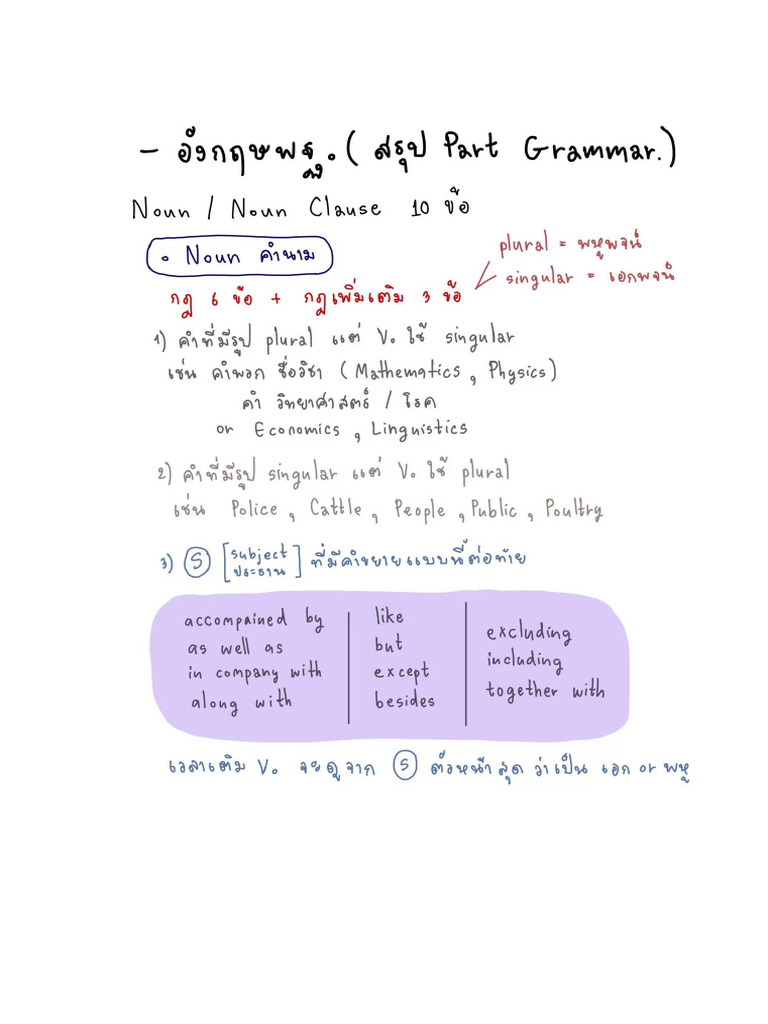 - อังกฤษพฐ. ( สรุป Part Grammar. )
Noun / Noun Clause 10 ข้อ
• Noun คำนาม
plural = พหูพจน์
singular = เอกพจน์
กฎ 6 ข้อ + กฎเพิ่มเติม 3 ข้อ
1) คำที่มีรูป plural แต่ V. ใช้ singular
เช่น คำพวก ชื่อวิชา ( Mathematics , Physics )
คำ วิทยาศาสตร์ / โรค
or Economics , Linguistics
2) คำที่มีรูป singular แต่ V. ใช้ plural
เช่น Police , Cattle , People , Public , Poultry
3) S [ subject ประธาน ] ที่มีคำขยายแบบนี้ต่อท้าย
accompained by
as well as
in company with
along with
like
but
except
besides
excluding
including
together with
เวลาเติม V. จะดูจาก S ตัวหน้าสุด ว่าเป็น เอก or พหู